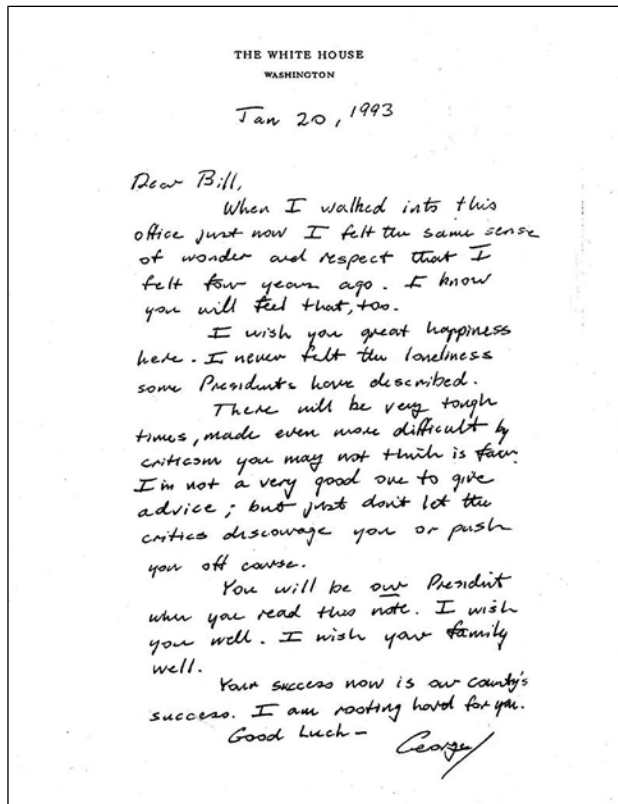 THE WHITE HOUSE
WASHINGTON
Jan 20, 1993
Dear Bill,
When I walked into this
office just now I felt the same sense
of wonder and respect that I
felt four years ago. I know
you will feel that, too.
I wish you great happiness
here. I never felt the loneliness
some Presidents have described.
There will be very tough
times, made even more difficult by
criticism you may not think is fair.
I'm not a very good one to give
advice; but just don't let the
critics discourage you or push
you off course.
You will be our President
when you read this note. I wish
you well. I wish your family
well.
Your success now is our county's
success. I am rooting hard for you.
Good Luck-
George